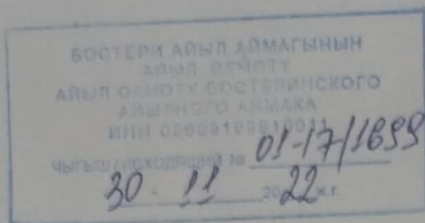 БОСТЕРИ АЙЫЛ АЙМАГЫНЫН
АЙЫЛ ӨКМӨТҮ
АЙЫЛ ОКМОТУ БОСТЕРИНСКОГО
АЙЫЛНОГО АЙМАКА
ИНН
ЧЫГЫШ/ИСХОДЯЩИЙ № 01-17/1699
30. 11 2022 ж.г.